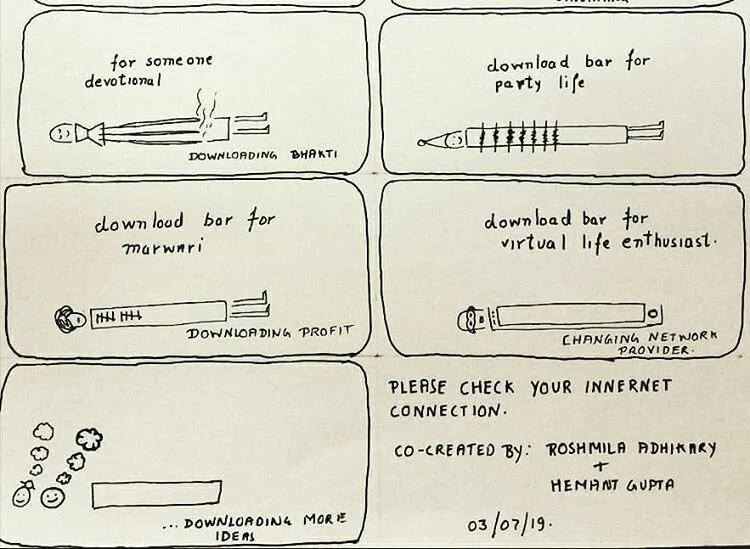 for someone
devotional
DOWNLOADING BHAKTI
download bar for
party life
download bar for
marwari
DOWNLOADING PROFIT
download bar for
virtual life enthusiast.
CHANGING NETWORK
PROVIDER.
...DOWNLOADING MORE
IDEAS
PLEASE CHECK YOUR INNERNET
CONNECTION.
CO-CREATED BY: ROSHMILA ADHIKARY
+
HEMANT GUPTA
03/07/19.